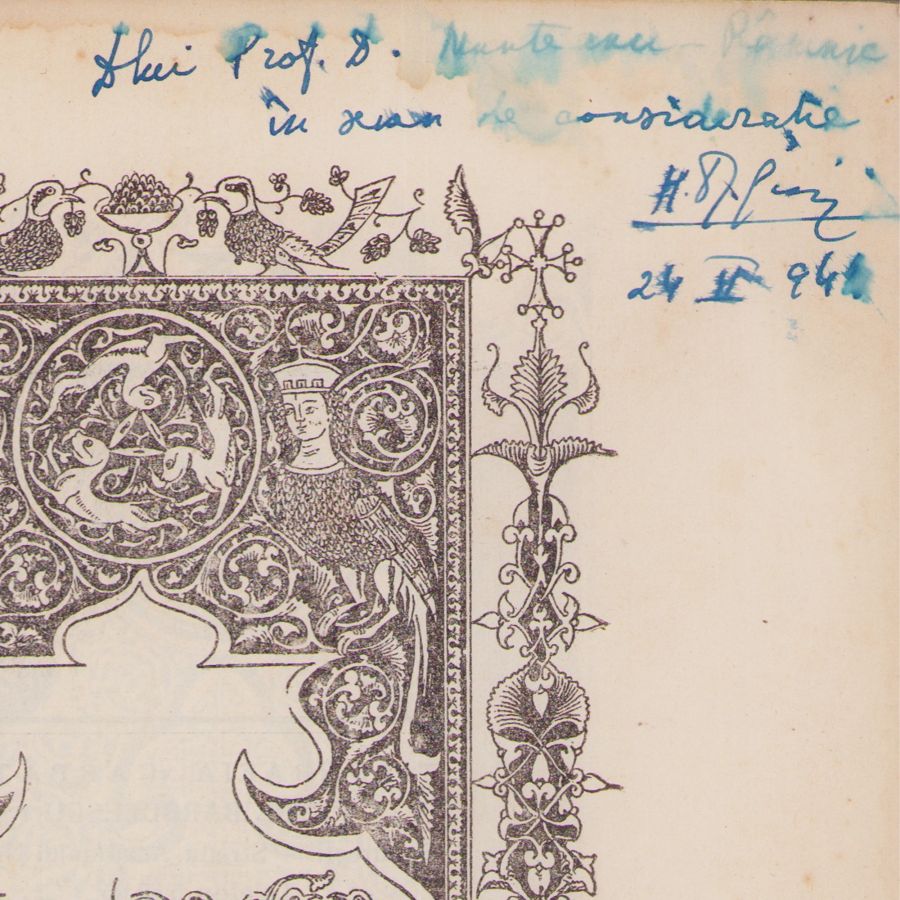 Dlui Prof. D. Munteanu - Râmnic
în semn de considerație
24 II 941